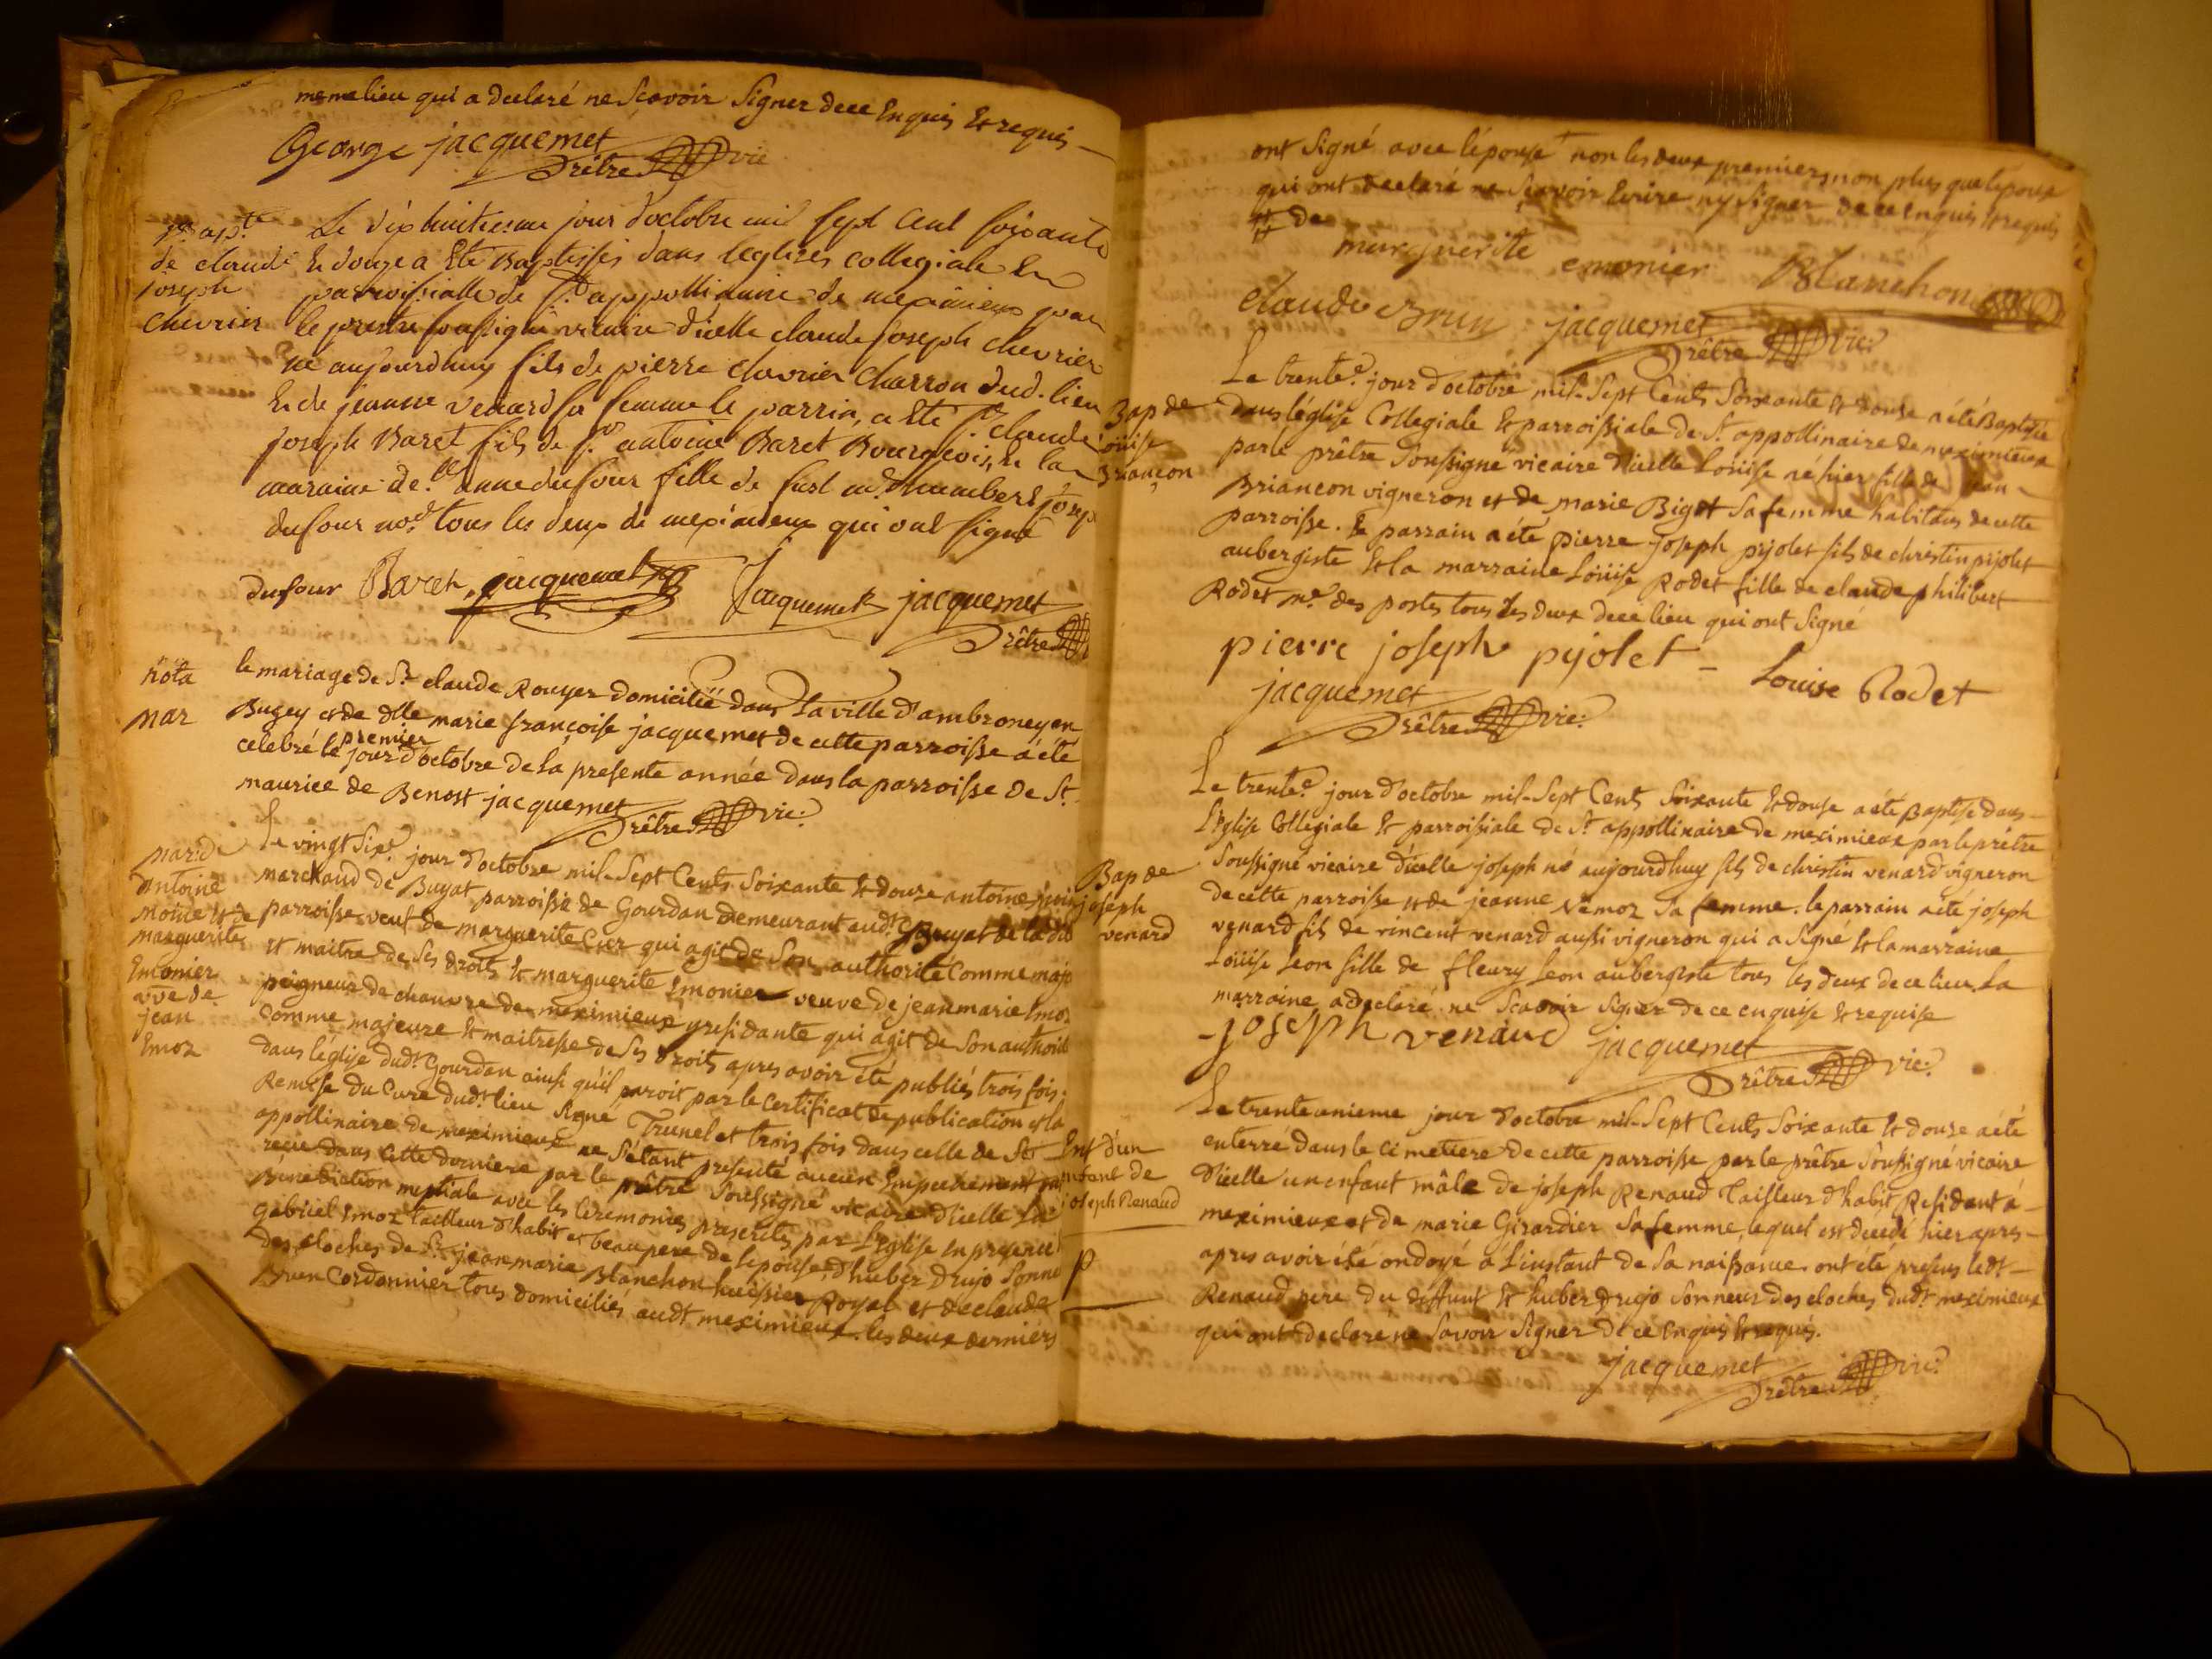 meme lieu qui a declaré ne Scavoir Signer dece Enquis Et requis
George jacquemet
Prêtre vic
Bap.
de claude
joseph
chevrier
Le dixhuitiesme jour d'octobre mil sept cent soixante
Et douze a Eté Baptisés dans leglises collegiale Et
parroissialle de St. appollinaire de meximieux par
le prestre soussigné vicaire d'icelle claude joseph chevrier
né aujourdhuy fils de pierre chevrier charron dud. lieu
Et de jeanne venard sa femme le parrin, a Eté Sr claude
joseph Baret fils de Sr. antoine Baret Bourgeois, Et la
maraine de.lle anne dufour fille de fust humbert josep
dufour no.re tous les deux de meximieux qui ont signé
dufour Baret jacquemet Jacquemet jacquemet
Prêtre
nota
mar
le mariage de Sr. claude Rouyer domicilié dans la ville d'ambroney en
Bugey et de dlle marie françoise jacquemet de cette parroisse a été
premier
celebré le jour d'octobre de la presente année dans la parroisse de St.
maurice de Benost jacquemet
Prêtre vic:
mar: de
antoine
moine et de
marguerite
Emonier
vve de
jean
Emoz
Le vingt Sixe. jour d'octobre mil-Sept Cents Soixante Et douze antoine
marchand de Buyat parroisse de Gourdan demeurant aud. Buyat de la dite
parroisse veuf de marguerite Cier qui agit de Son authorité Comme maje
et maitre de Ses droits Et marguerite Emonier veuve de jean marie Emoz
peigneur de chanvre de meximieux y residante qui agit de Son authorit
Comme majeure Et maitresse de Ses droits apres avoir été publiés trois fois
dans l'église dudt. Gourdan ainsi qu'il paroit par le Certificat de publication et la
Remise du Curé dudt. lieu Signé Trunel et trois fois dans celle de St.
appollinaire de meximieux ne S'étant presenté aucun Empechement
recue dans cette derniere par le prêtre Soussigné vicaire d'icelle la
Benediction nuptiale avec les Ceremonies prescrites par L'église En presence
Gabriel Emoz tailleur d'habit et beaupere de lepouse, d'huber Drujo Sonne
des cloches de Sr. jean marie Blanchon huissier Royal et de claude
Brun Cordonnier tous domiciliés audt meximieux. les deux derniers
ont Signé avec l'épouse non les deux premiers non plus que lepoux
qui ont declaré ne Scavoir Ecrire ny Signer de ce Enquis Et requis
de
marguerite emonier Blanchon
claude Brun jacquemet
Prêtre vic:
Bap de
Loüise
Briançon
Le trente.e jour d'octobre mil-Sept Cents Soixante Et douze a été Baptisée
dans l'église Collegiale Et parroissiale de St. appollinaire de meximieux
par le prêtre Soussigné vicaire d'icelle Loüise née hier fille de jean
Briancon vigneron et de marie Bigot Sa femme habitans de cette
parroisse. le parrain a été pierre joseph pijolet fils de christin pijolet
aubergiste Et la marraine Loüise Rodet fille de claude philibert
Rodet me. des postes tous les deux dece lieu qui ont Signé
pierre joseph pyolet Louise Rodet
jacquemet
Prêtre vic:
Bap de
joseph
venard
Le trente.e jour d'octobre mil-Sept Cents Soixante Et douse a été Baptise dans
L'église Collegiale Et parroissiale de St. appollinaire de meximieux par le prêtre
Soussigné vicaire d'icelle joseph né aujourdhuy fils de christin venard vigneron
de cette parroisse et de jeanne Némoz Sa femme. le parrain a été joseph
venard fils de vincent venard aussi vigneron qui a Signé Et la marraine
Loüise Leon fille de fleury Leon aubergiste tous les deux de ce lieu. la
marraine a declaré ne Scavoir Signer de ce enquise Et requise
joseph venaud jacquemet
Prêtre vic:
Ent d'un
enfant de
joseph Renaud
p
Le trente unieme jour d'octobre mil-Sept Cents Soixante Et douze a été
enterré dans le cimetiere de cette parroisse par le prêtre Soussigné vicaire
d'icelle un enfant mâle de joseph Renaud Tailleur d'habit Residant á
meximieux et de marie Girardier Sa femme, lequel est decedé hier apres
apres avoir été ondoyé á L'instant de Sa naissance. ont été presens ledt
Renaud pere du deffunt Et huber drujo Sonneur des cloches dudt meximieux
qui ont declaré ne Savoir Signer de ce Enquis Et requis.
jacquemet
Prêtre vic: